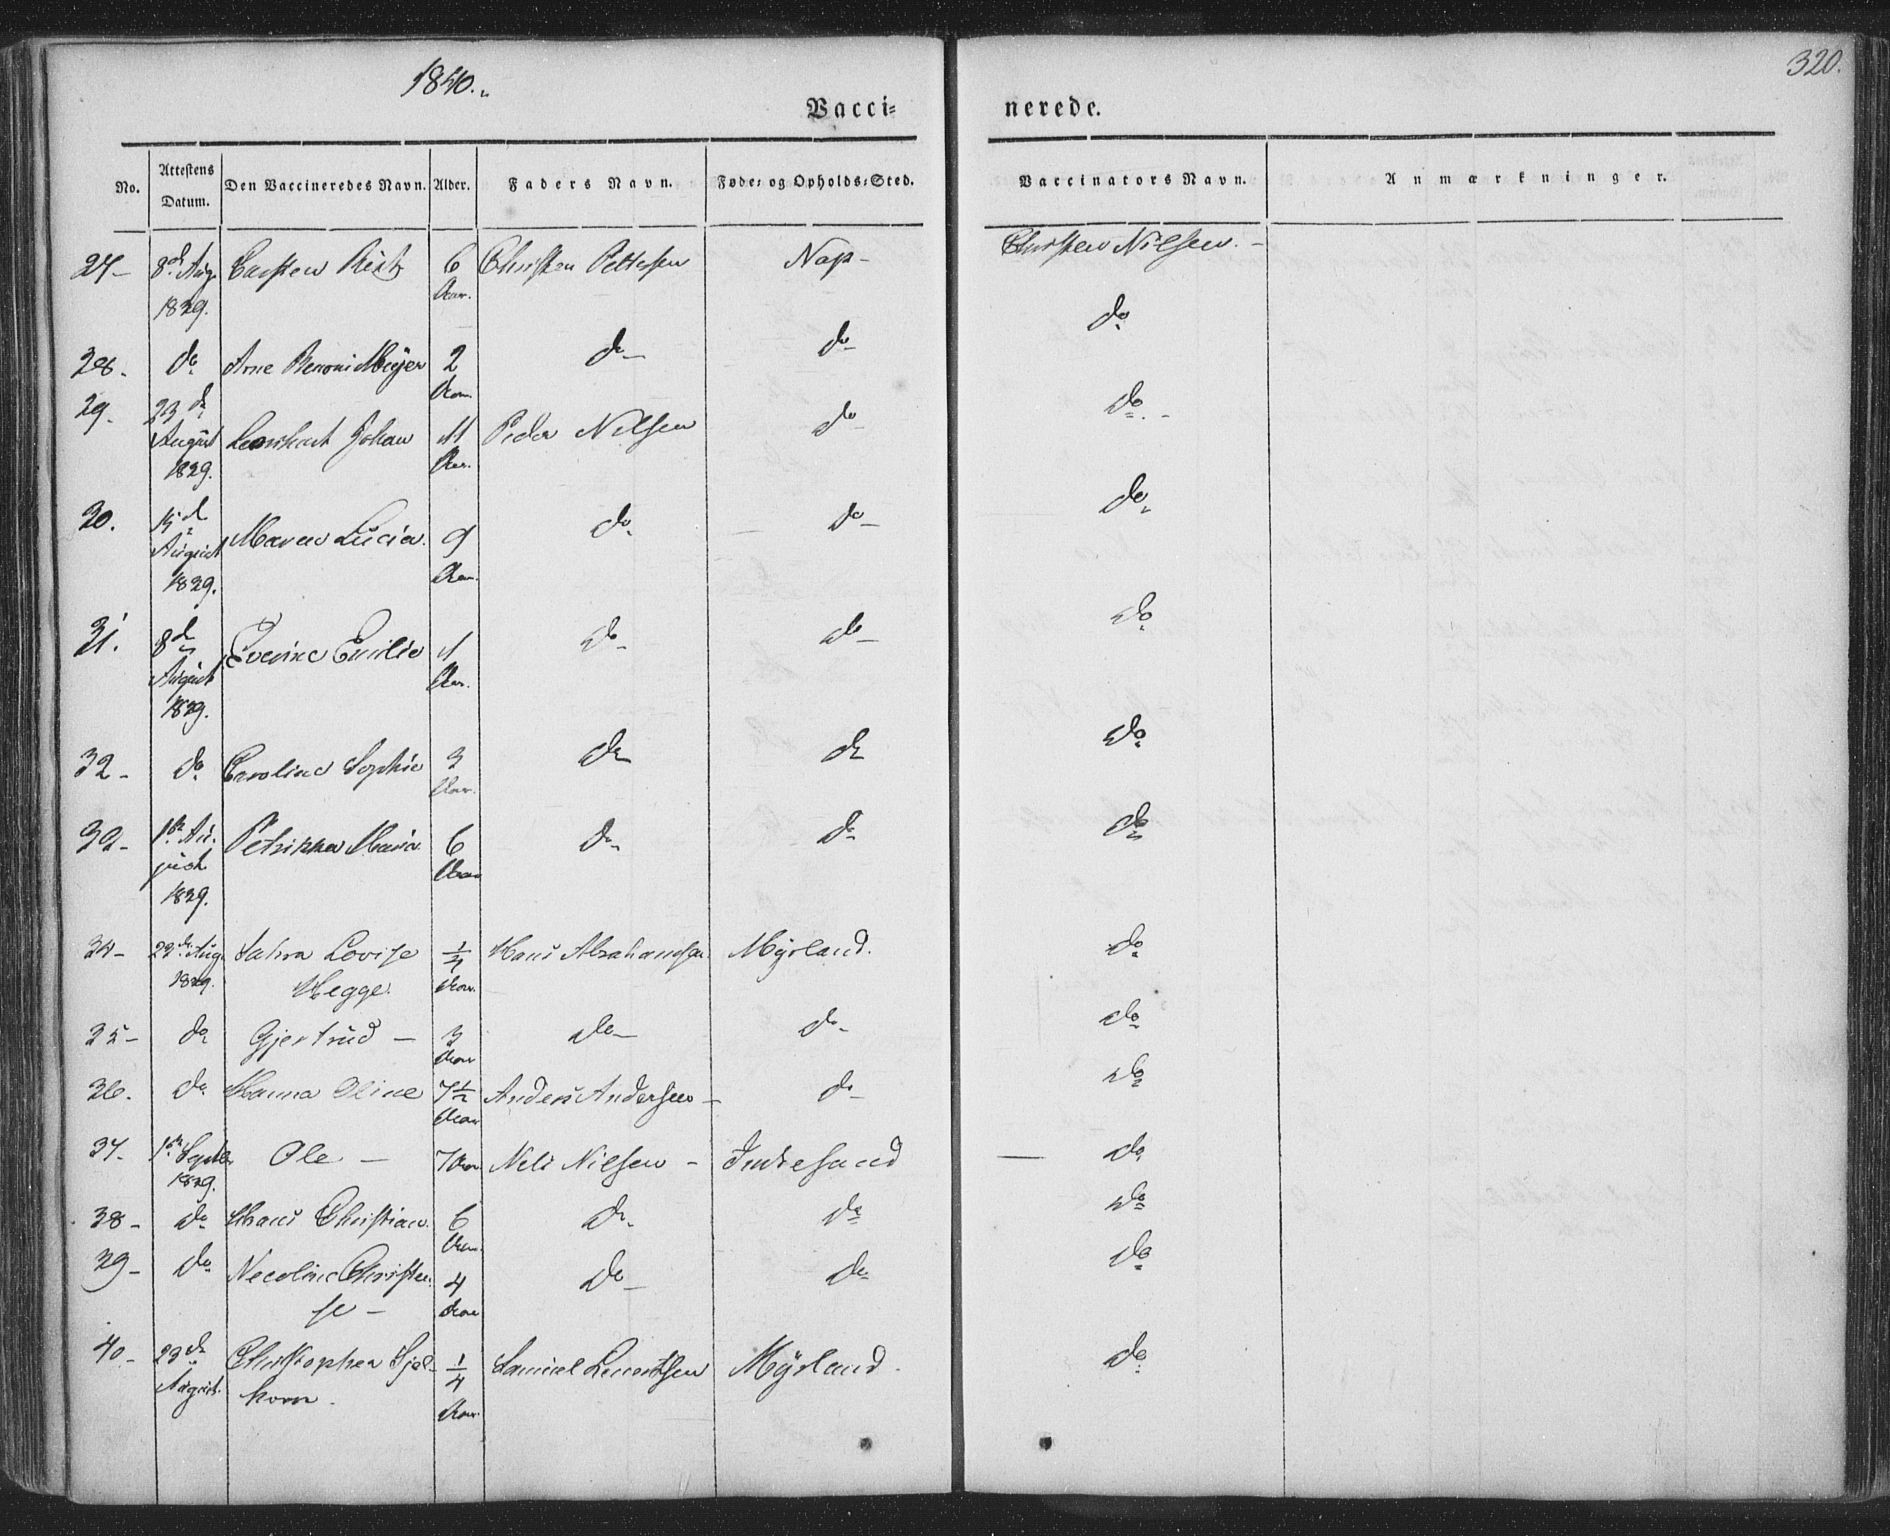 1840.
320.
Vacci= nerede.
No. Attestens Datum. Den Vaccineredes Navn. Alder. Faders Navn. Føde= og Opholds=Sted. Vaccinators Navn. Anmærkninger.
27 8d Aug. Carsten 6 Christen Pettersen Nap Christen Nilsen.
1839. Aar.
do
28. do Arne Meÿer 2 do do
Aar.
29. 23d do
August Johan 11 Peder Nilsen do
1839. Aar.
do
30. 15d Maren Lucia. 9 do do
August Aar.
1839.
do
31. 8d Everine Emilie 1 do do
August Aar.
1839.
do
32 do Caroline Sophie 3 do do
Aar.
do
33 1ste Au- Petrikka Maria 6 do do
gust Aar
1839.
34 23de Aug. Lovise 1/4 Hans Abrahamsen Myrland. do
1839. Hegge. Aar.
35 do Gjertrud 3 do do do
Aar
36. do Hanna Oline 7 1/2 Anders Andersen do do
Aar
37 1ste Septbr Ole 7 Aar Nels Nilsen do
1839.
38 do Hans Christian 6 do do do
Aar.
39 do Necoline Christen- 4 do do do
se Aar
40 23de Christopher Sjel- 1/4 Samuel Lenertsen Myrland. do
August. korn. Aar.